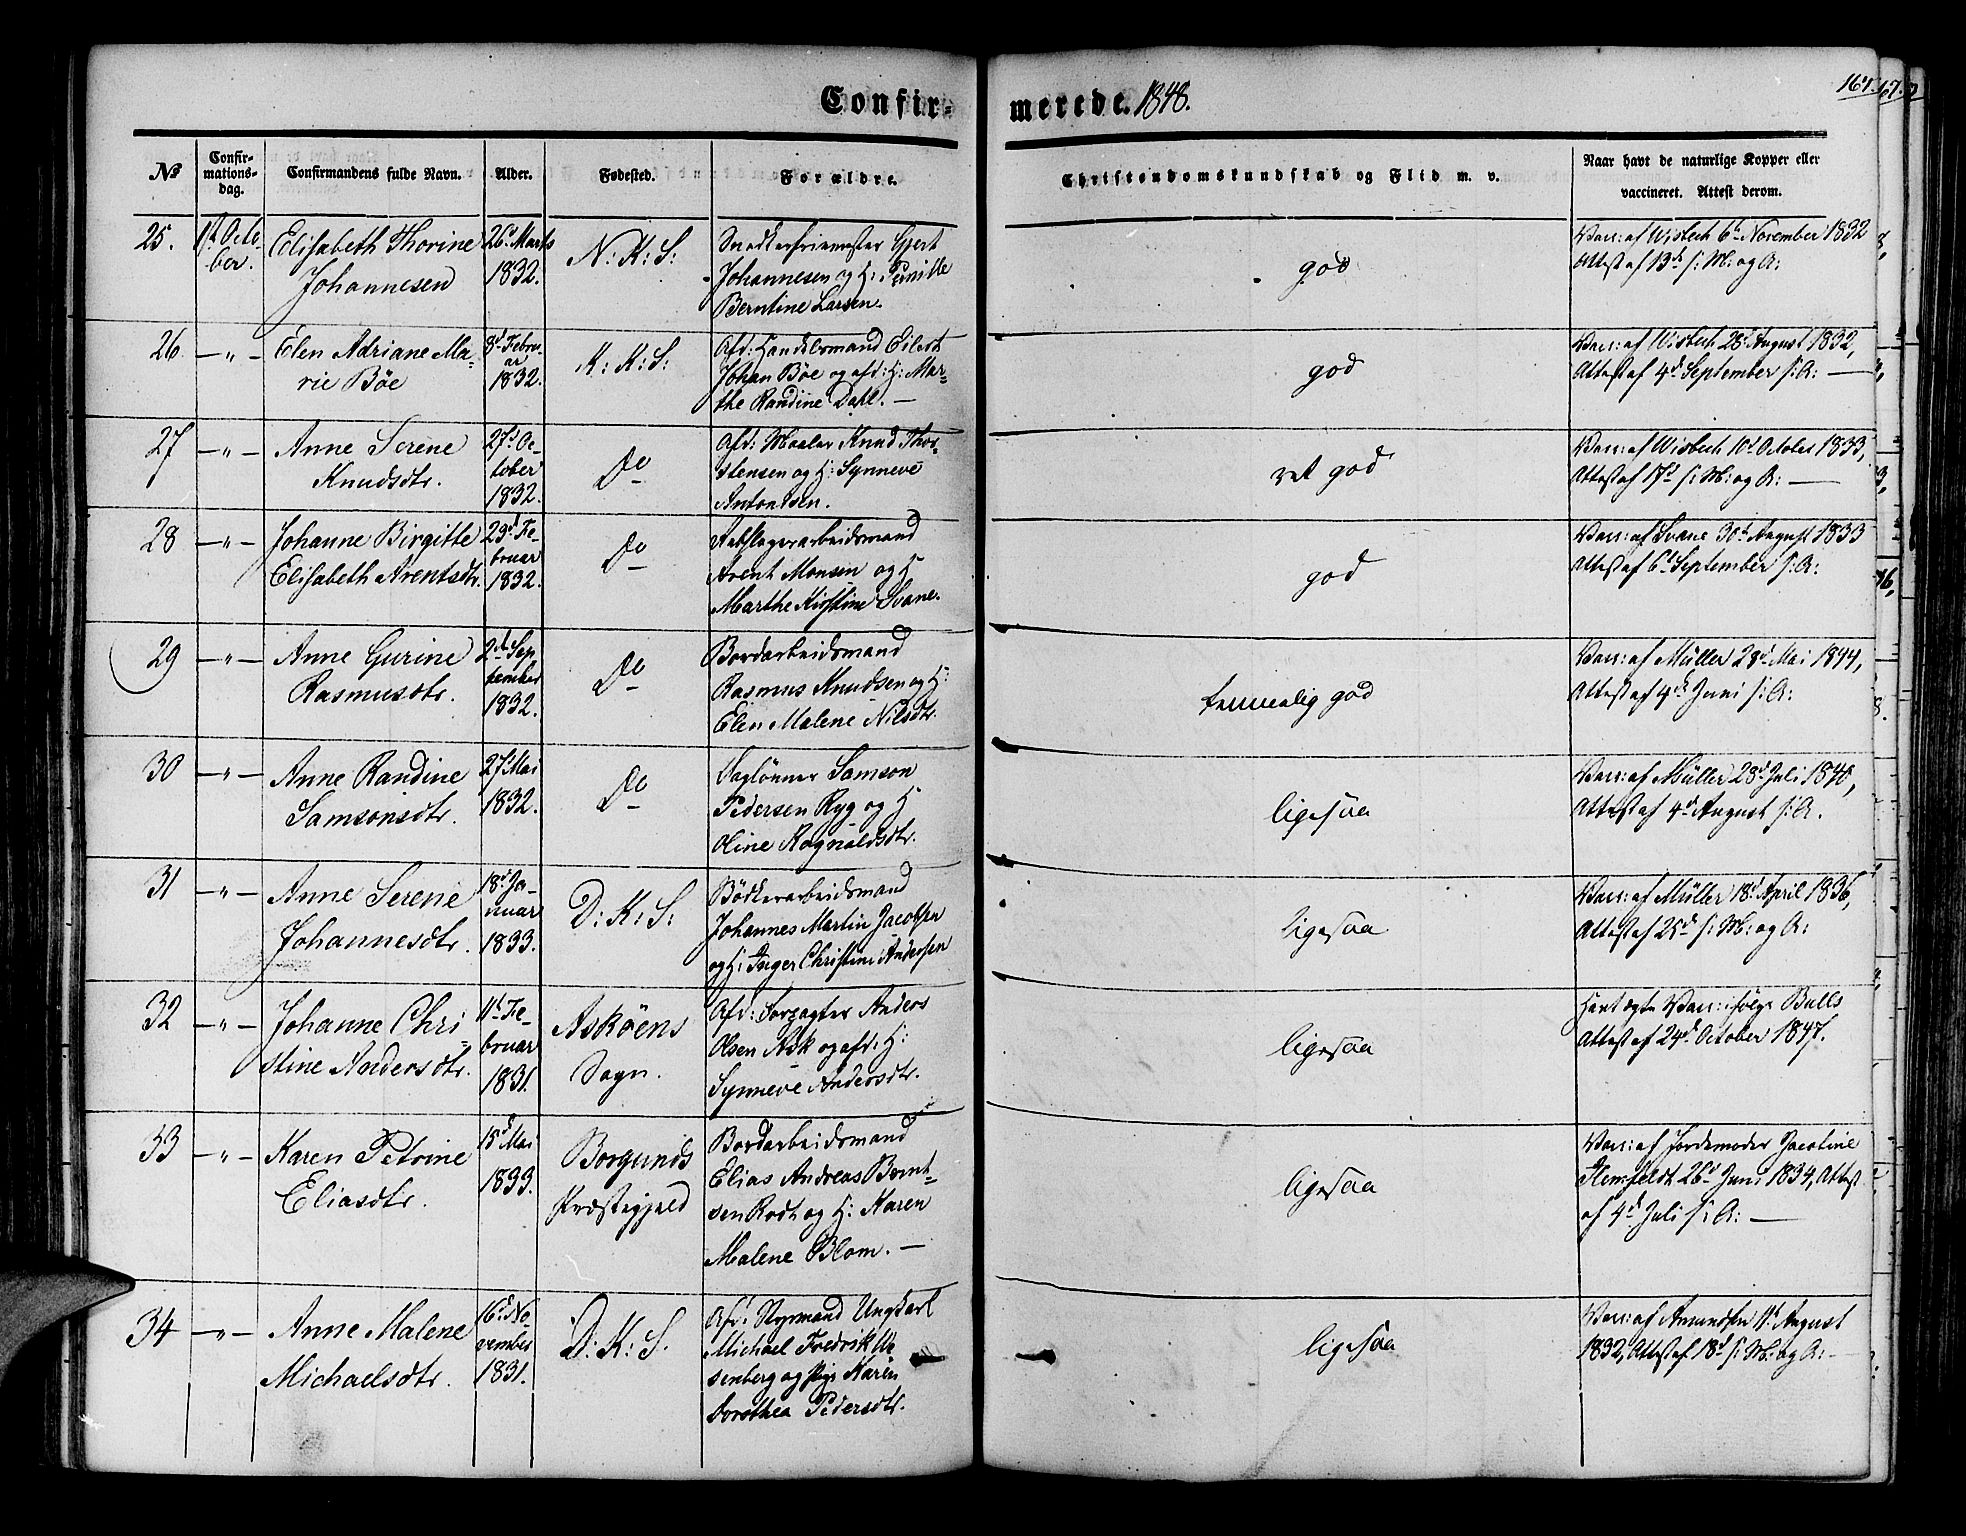 Confir-
merede. 1848.
No
Confir-
mations-
dag.
Confirmandens fulde Navn.
Alder.
Fødested.
Forældre.
Christendomskundskab og Flid m. v.
Naar havt de naturlige Kopper eller
vaccineret. Attest derom.
25.
1st Octo-
ber.
Elisabeth Thorine
Johannesen
26d Marts
1832.
N: K: S:
Johannesen og H:
Berntine Larsen.
god
Vacc: af Wisbech 6d November 1832
Attest af 13d s: M: og A:
26.
—"—
Elen Adriane Ma-
rie Bøe
Febru-
ar
1832.
K: K: S:
Afd: Handelsmand Eilert
Johan Bøe og afd: H: Mar-
the Randine Dahl. —
god
Vacc: af Wisbech 28d August 1832,
Attest af 4d September s: A: —
27
—"—
Anne Serene
Knudsdtr.
27d Oc-
tober
1832.
Do
Afd: Maaler Knud Thor-
stensen og H: Synneve
Antonsen.
ret god
Vacc: af Wisbech 10d October 1833,
Attest af 17d s: M: og A: —
28
—"—
Johanne Birgitte
Elisabeth Arentsdtr.
29d Fe-
bruar
1832.
Do
Rebslagerarbeidsmand
Arent Monsen og H:
Marthe Kirstine Svane.
god
Vacc: af Svane 30d August 1833
Attest af 6d September s: A:
29
—"—
Anne Gurine
Rasmusdtr.
2d Sep
tember
1832.
Do
Bordarbeidsmand
Rasmus Knudsen og H:
Elen Malene Nilsdtr.
temmelig god
Vacc: af Müller 28d Mai 1844,
Attest af 4d Juni s: A:
30
—"—
Anne Randine
Samsonsdtr.
27d Mai
1832.
Do
Daglønner Samson
Pedersen Ryg og H:
Oline Rognaldsdtr.
ligesaa
Vacc: af Müller 28d Juli 1840,
Attest af 4d August s: A.
31
—"—
Anne Serene
Johannesdtr.
18d Ja-
nuar
1833.
D: K: S:
Bødkerarbeidsmand
Johannes Martin Jacobsen
og H: Inger Christine Andersen
ligesaa
Vacc: af Müller 18d April 1836,
Attest af 25d s: M: og A:
32
—"—
Johanne Chri-
stine Andersdtr.
11d Fe-
bruar
1831.
Askøens
Sogn.
Afd: Forpagter Anders
Olsen Ask og afd: H:
Synneve Andersdtr.
ligesaa
Havt ægte Vacc: ifølge Bulls
Attest af 24d October 1847.
33
—"—
Karen Petrine
Eliasdtr.
15d Mai
1833.
Borgunds
Præstegjeld
Bordarbeidsmand
Elias Andreas Bernt-
sen Rodt og H: Karen
Malene Blom. —
ligesaa
Vacc: af Jordemoder Jacobine
26d Juni 1834, Attest
af 4d Juli s: A: —
34
—"—
Anne Malene
Michaelsdtr.
16d No-
vember
1831.
D: K: S.
Afd: Styrmand Ungkarl
Michael Fredrik We
senberg og Pige Karen
Dorothea Pedersdtr.
ligesaa
Vacc: af Amundsen 11d August
1832, Attest af 18d s: M: og A: —